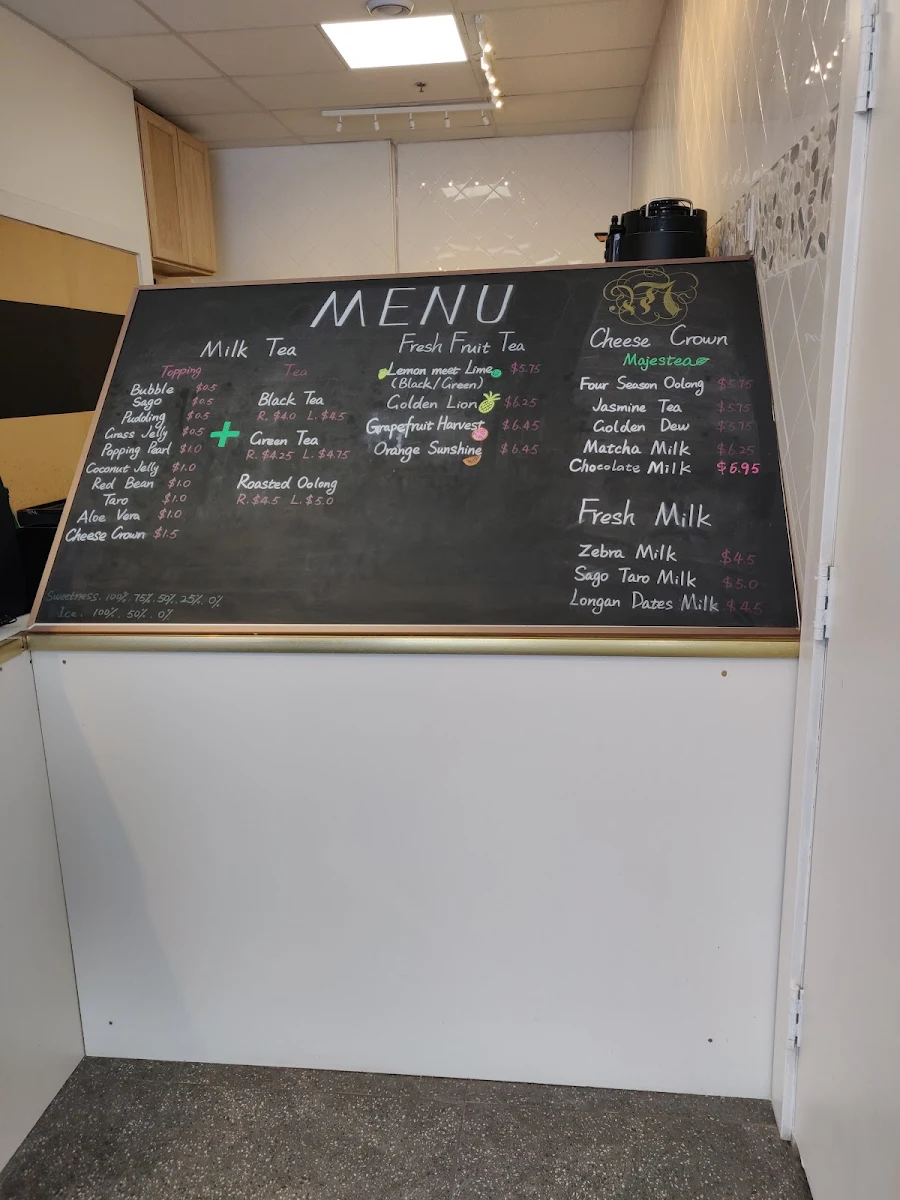 MENU
Milk Tea
Topping
Bubble $0.5
Sago $0.5
Pudding $0.5
Grass Jelly $0.5
Popping Pearl $1.0
Coconut Jelly $1.0
Red Bean $1.0
Taro $1.0
Aloe Vera $1.0
Cheese Crown $1.5
+
Tea
Black Tea
R. $4.0 L. $4.5
Green Tea
R. $4.25 L. $4.75
Roasted Oolong
R. $4.5 L. $5.0
Sweetness. 100%. 75%. 50%. 25%. 0%
Ice. 100%. 50%. 0%
Fresh Fruit Tea
Lemon meet Lime $5.75
(Black/Green)
Golden Lion $6.25
Grapefruit Harvest $6.45
Orange Sunshine $6.45
Cheese Crown
Majestea
Four Season Oolong $5.75
Jasmine Tea $5.75
Golden Dew $5.75
Matcha Milk $6.25
Chocolate Milk $6.95
Fresh Milk
Zebra Milk $4.5
Sago Taro Milk $5.0
Longan Dates Milk $4.5